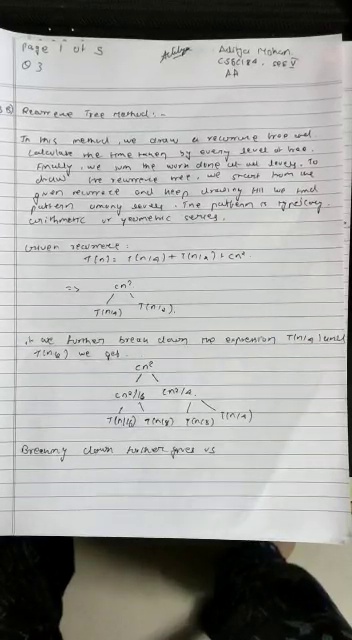 Page 1 of 5
Aditya
Aditya Mohan
CSE, SEC V
Q3
AA
Recurrence Tree Method:-
In this method, we draw a recurrence tree and
calculate the time taken by every level of tree.
Finally, we sum the work done at all levels. To
draw the recurrence tree, we start from the
given recurrence and keep drawing till we find
pattern among levels. The pattern is typically
arithmetic or geometric series.
Given recurrence:
T(n) = T(n/4) + T(n/2) + cn²
=> cn²
T(n/4) T(n/2).
if we further break down the expression T(n/4) and
T(n/2) we get.
cn²
cn²/16 cn²/4
T(n/16) T(n/8) T(n/8) T(n/4)
Breaking down further gives us